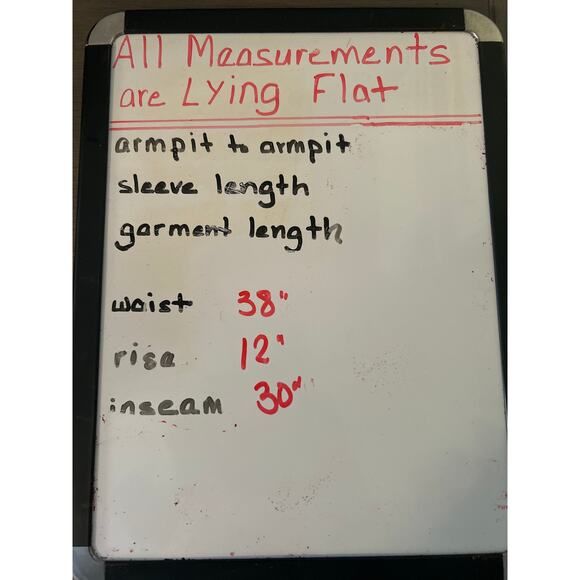 All Measurements
are Lying Flat
armpit to armpit
sleeve length
garment length
waist 38"
rise 12"
inseam 30"